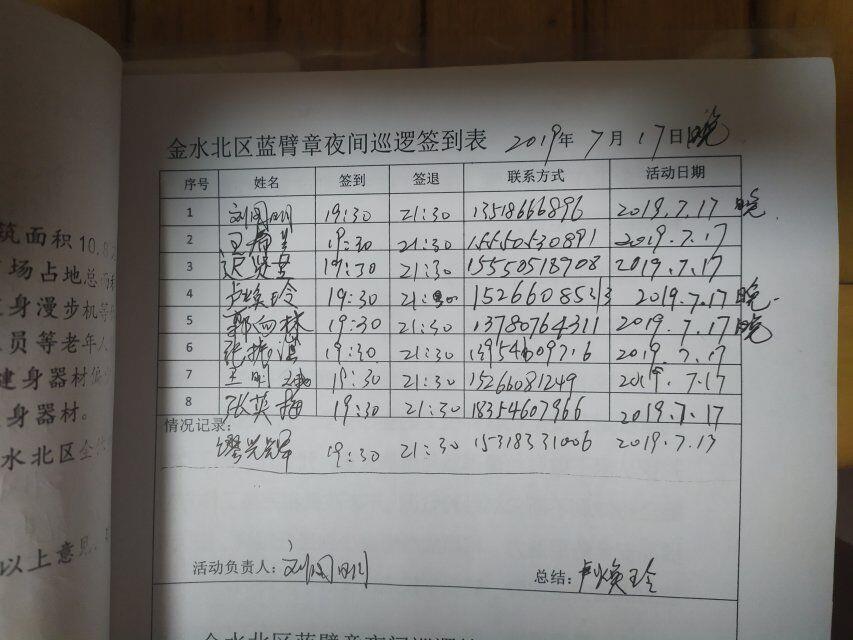 金水北区蓝臂章夜间巡逻签到表 2019年7月17日晚
序号 姓名 签到 签退 联系方式 活动日期
1 刘国明 19:30 21:30 13518666896 2019.7.17 晚
2 19:30 21:30 15550530891 2019.7.17
3 19:30 21:30 15550518908 2019.7.17
4 卢焕玲 19:30 21:30 15266085313 2019.7.17 晚
5 19:30 21:30 13780764311 2019.7.17 晚
6 张振洪 19:30 21:30 13954609716 2019.7.17
7 19:30 21:30 15266081249 2019.7.17
8 张英梅 19:30 21:30 18354607966 2019.7.17
情况记录:
19:30 21:30 15318331006 2019.7.17
活动负责人: 刘国明 总结: 卢焕玲
筑面积10.8
场占地总面积
身漫步机等
员等老年人
建身器材偏
身器材。
水北区全体
以上意见,
金水北区蓝臂章夜间巡逻签